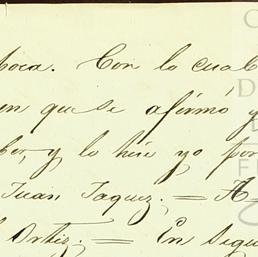 boca. Con lo cual
en que se afirmó y
ber, y lo hice yo por
Juan Jaquez. = A
Ortiz. = En segu